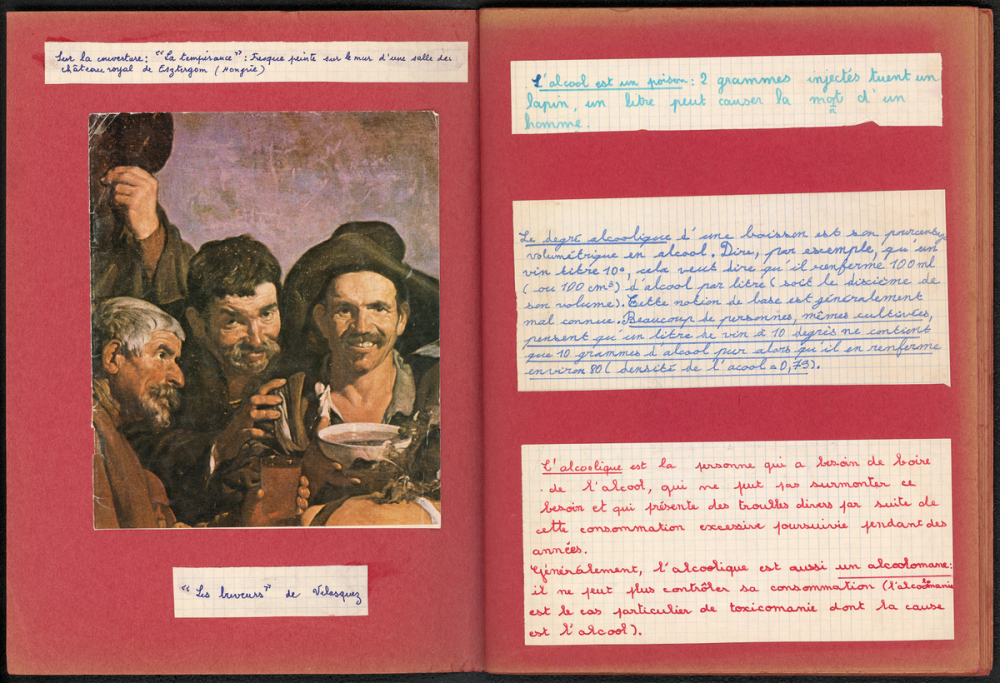 Sur la couverture: "La tempérance": Fresque peinte sur le mur d'une salle du
château royal de Esztergom (Hongrie)
"Les buveurs" de Velasquez
L'alcool est un poison: 2 grammes injectés tuent un
lapin, un litre peut causer la mort d'un
homme.
Le degré alcoolique d'une boisson est son pourcentage
volumétrique en alcool. Dire, par exemple, qu'un
vin titre 10°, cela veut dire qu'il renferme 100 ml
(ou 100 cm³) d'alcool par litre (soit le dixième de
son volume). Cette notion de base est généralement
mal connue. Beaucoup de personnes, mêmes cultivées,
pensent qu'un litre de vin à 10 degrés ne contient
que 10 grammes d'alcool pur alors qu'il en renferme
environ 80 (densité de l'acool = 0,79).
L'alcoolique est la personne qui a besoin de boire
de l'alcool, qui ne peut pas surmonter ce
besoin et qui présente des troubles divers par suite de
cette consommation excessive poursuivie pendant des
années.
Généralement, l'alcoolique est aussi un alcoolomane:
il ne peut plus contrôler sa consommation (l'alcoolomanie
est le cas particulier de toxicomanie dont la cause
est l'alcool).